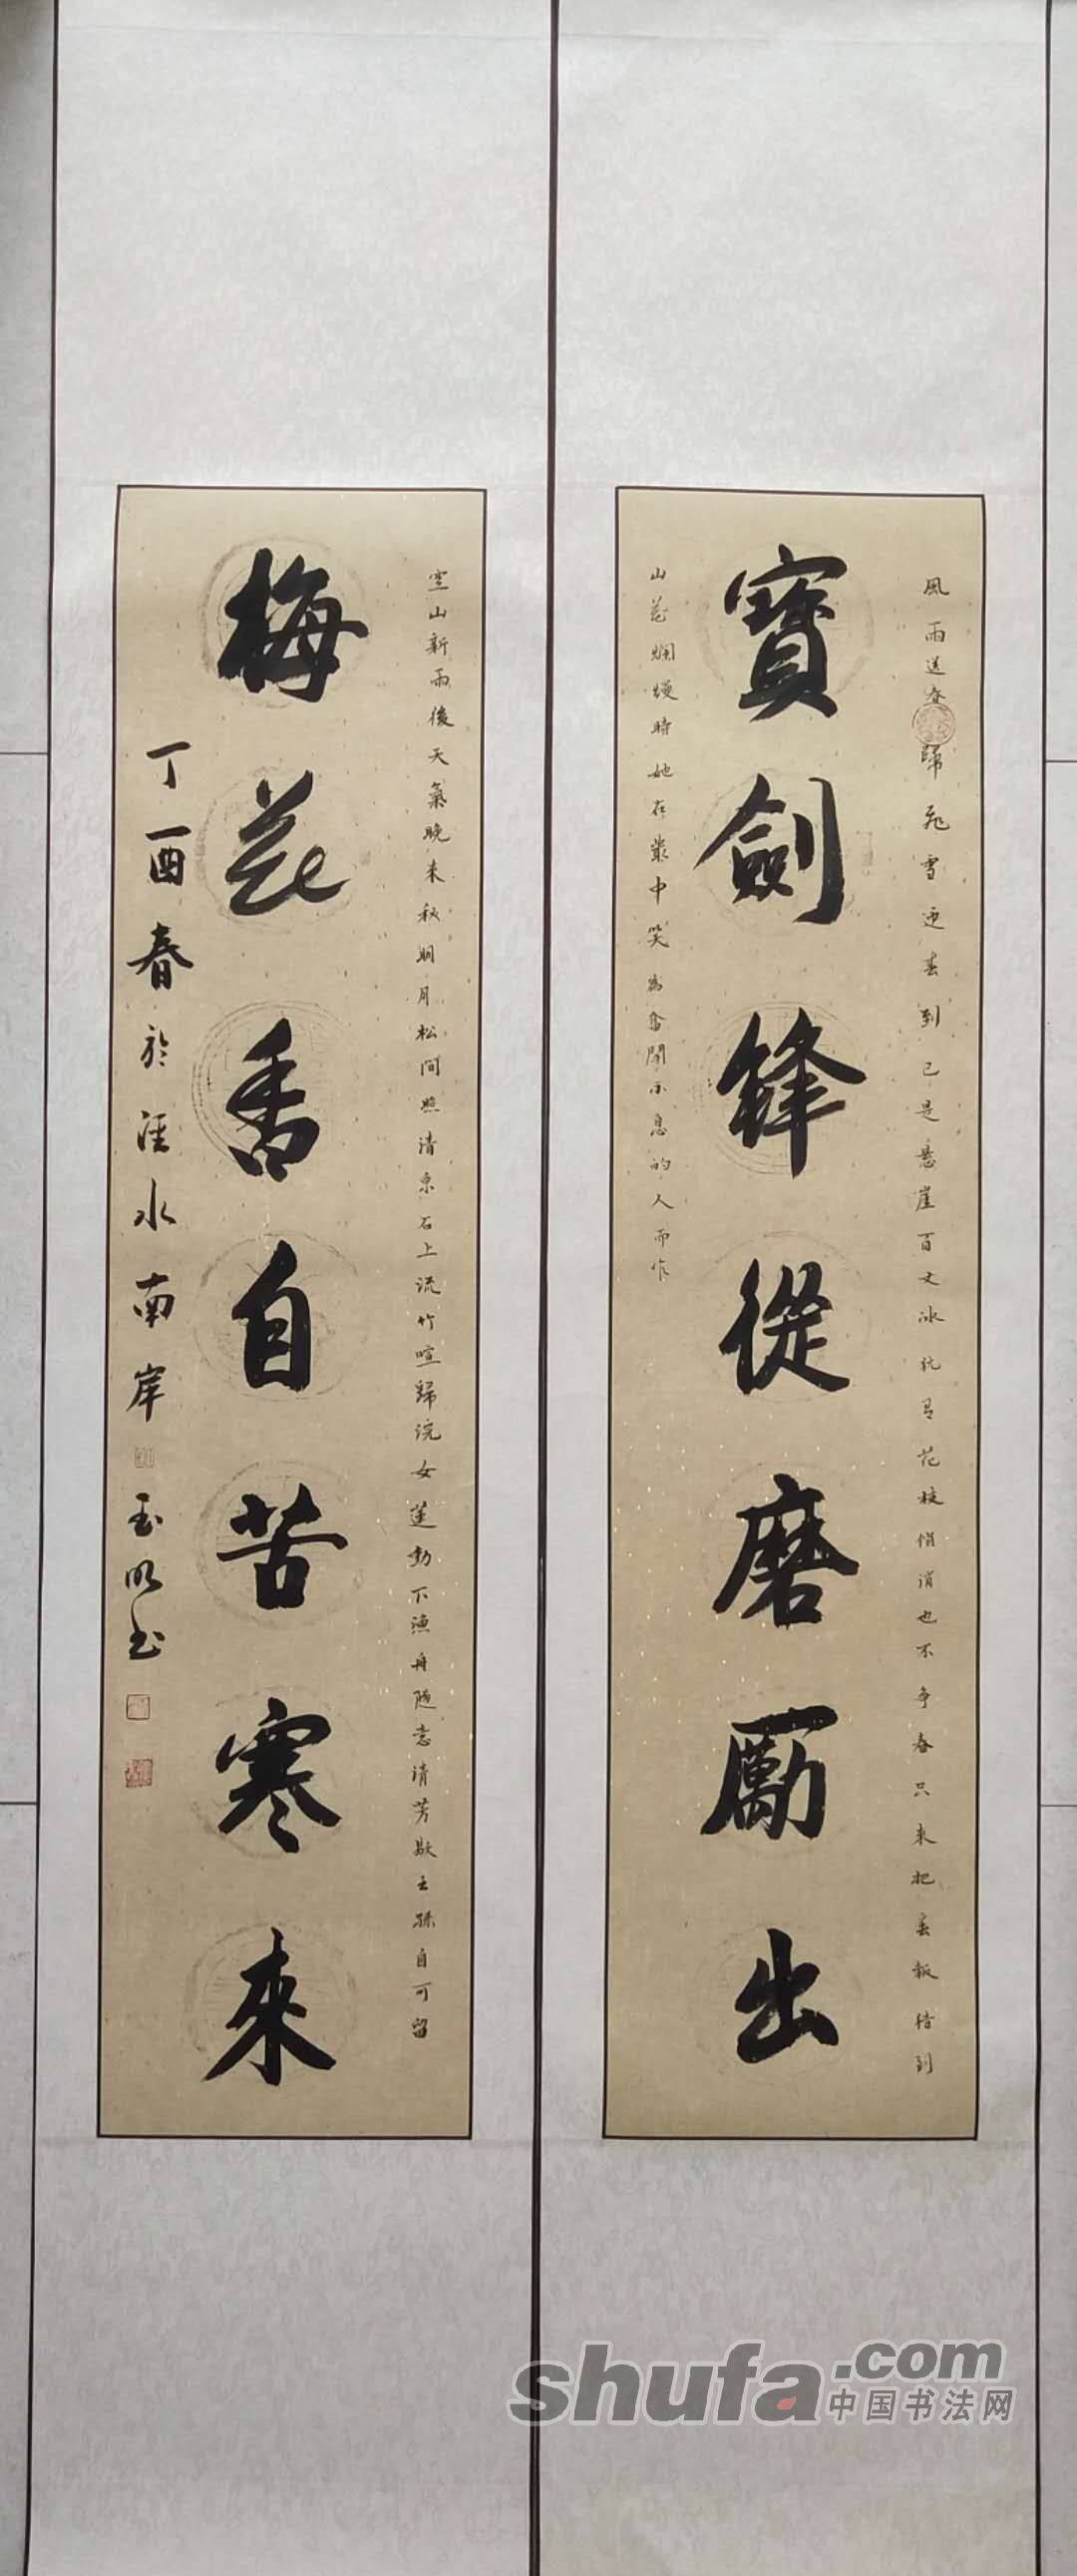 風雨送春歸飛雪迎春到已是悬崖百丈冰犹有花枝俏俏也不争春只來把春報待到
寶劍鋒從磨勵出
山花爛熳時她在叢中笑為奮鬥不息的人而作
空山新雨後天氣晚來秋明月松间照清泉石上流竹喧歸浣女莲動下漁舟随意清芳歇王孫自可留
梅花香自苦寒來
丁酉春於涇水南岸
玉明书
shufa.com
中国书法网